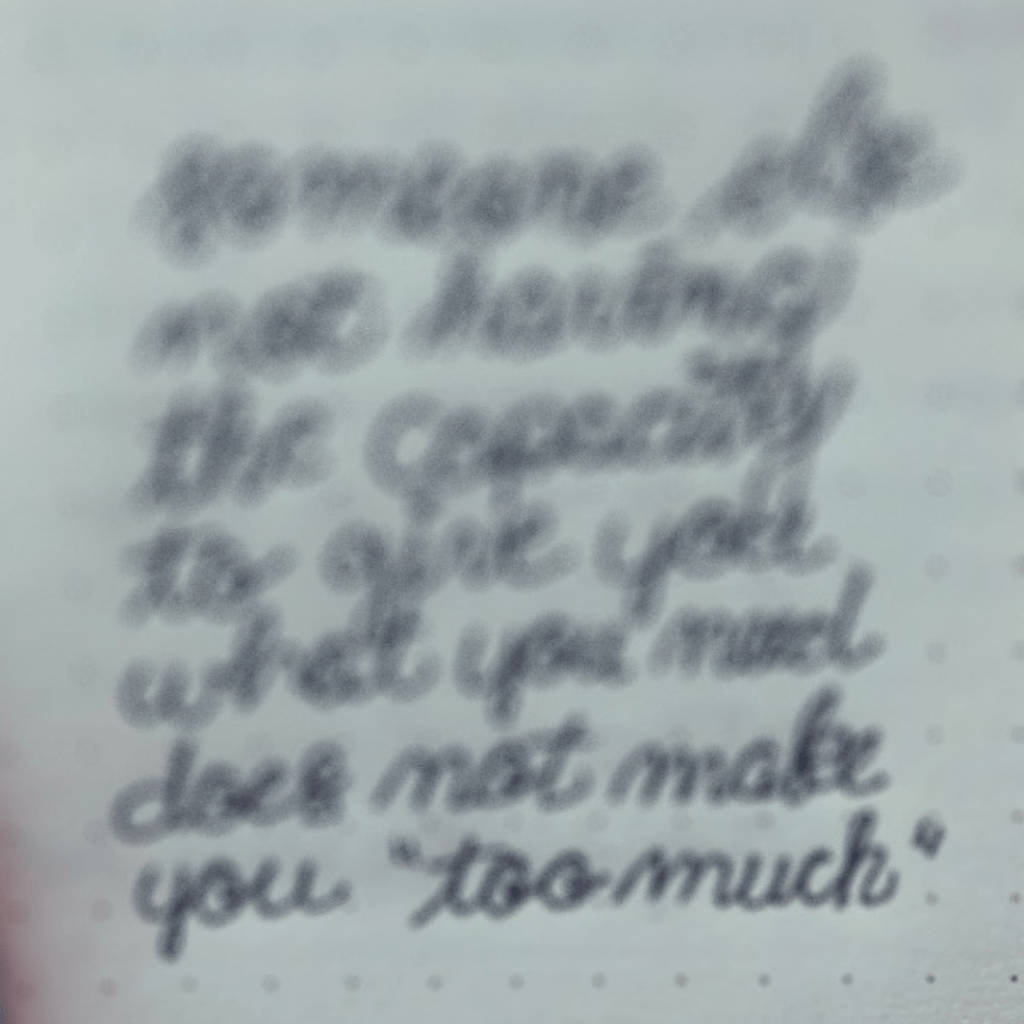 someone else
not having
the capacity
to give you
what you need
does not make
you "too much"